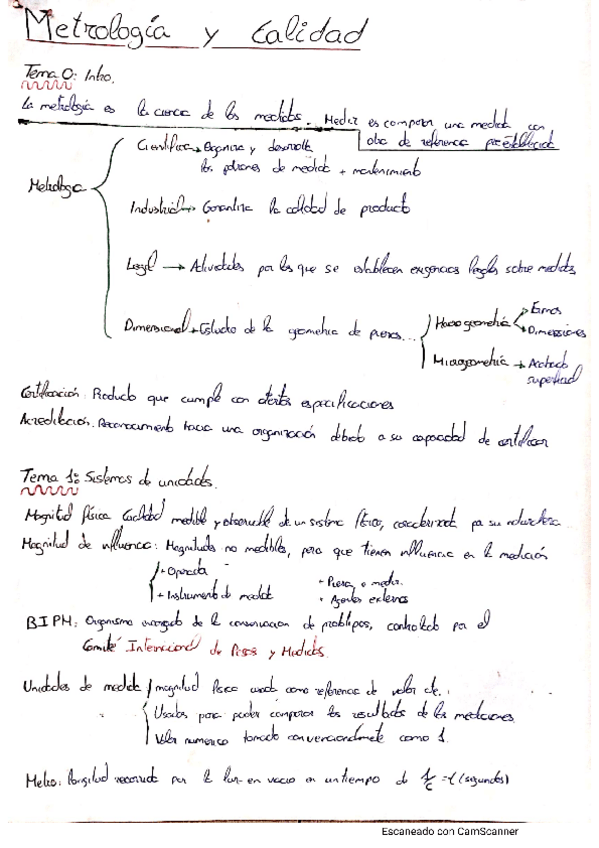 Metrología y Calidad
Tema 0: Intro.
La metrología es la ciencia de las medidas. Medir es comparar una medida con
otra de referencia preestablecida
Metrología
Científica → Organiza y desarrolla
los patrones de medida + mantenimiento
Industrial → Garantiza la calidad de producto
Legal → Actividades por las que se establecen exigencias legales sobre medidas
Dimensional → Estudio de la geometría de piezas...
Macrogeometría → Formas
→ Dimensiones
Microgeometría → Acabado
superficial
Certificación: Producto que cumple con ciertas especificaciones
Acreditación: Reconocimiento hacia una organización debido a su capacidad de certificar
Tema 1: Sistemas de unidades.
Magnitud física: Cualidad medible y observable de un sistema físico, caracterizada por su naturaleza
Magnitud de influencia: Magnitudes no medibles, pero que tienen influencia en la medición
+ Operario
+ Pieza a medir.
+ Instrumento de medida
+ Agentes externos
BIPM: Organismo encargado de la conservación de prototipos, controlado por el
Comité Internacional de Pesos y Medidas.
Unidades de medida / magnitud física usada como referencia de valor de...
Usados para poder comparar los resultados de las mediciones
Valor numérico tomado convencionalmente como 1.
Metro: Longitud recorrida por la luz en vacío en un tiempo de 1/c = t (segundos)
Escaneado con CamScanner